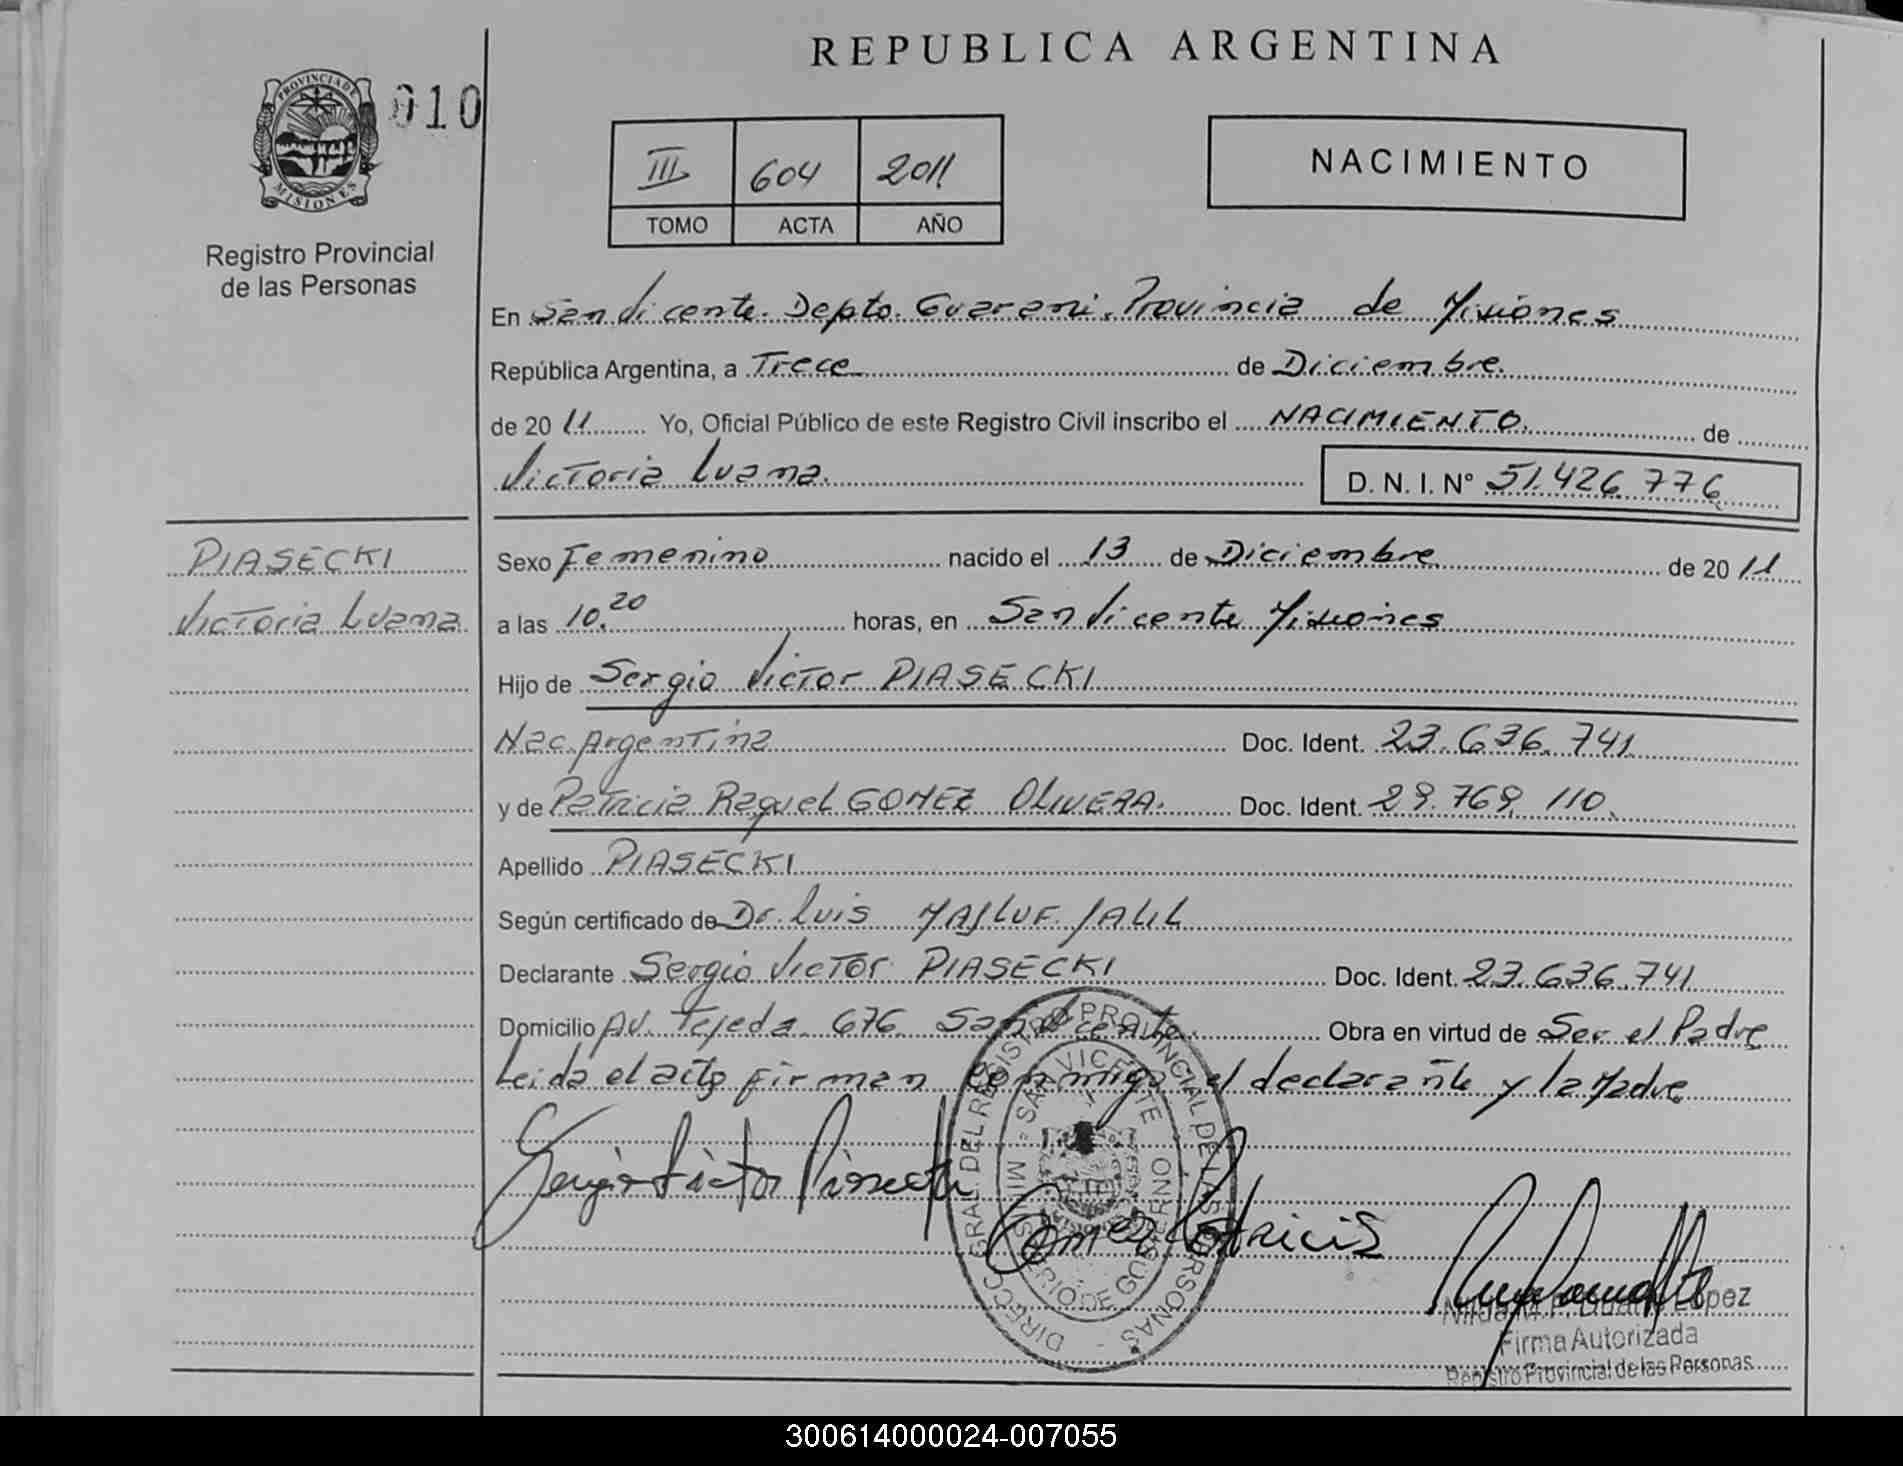 REPUBLICA ARGENTINA
PROVINCIA DE MISIONES
010
Registro Provincial
de las Personas
III 604 2011
TOMO ACTA AÑO
NACIMIENTO
En San Vicente Depto. Guarani, Provincia de Misiones
República Argentina, a Trece de Diciembre
de 20 11 Yo, Oficial Público de este Registro Civil inscribo el NACIMIENTO de
Victoria Luana
D. N. I. N° 51.426.776
PIASECKI
Victoria Luana
Sexo Femenino nacido el 13 de Diciembre de 20 11
a las 10.20 horas, en San Vicente Misiones
Hijo de Sergio Victor PIASECKI
Nac. Argentina Doc. Ident. 23.636.741
y de Patricia Raquel GOMEZ OLIVERA. Doc. Ident. 29.769.110
Apellido PIASECKI
Según certificado de Dr. Luis MASLUF JALIL
Declarante Sergio Victor PIASECKI Doc. Ident. 23.636.741
Domicilio Av. Tejeda 676 San Vicente Obra en virtud de Ser el Padre
Leida el acta firman conmigo el declarante y la Madre
Sergio Victor Piasecki
Gomez Patricia
DIRECC. GRAL. DEL REGISTRO PROVINCIAL DE LAS PERSONAS
SAN VICENTE
MINISTERIO DE GOBIERNO
López
Firma Autorizada
Registro Provincial de las Personas
300614000024-007055